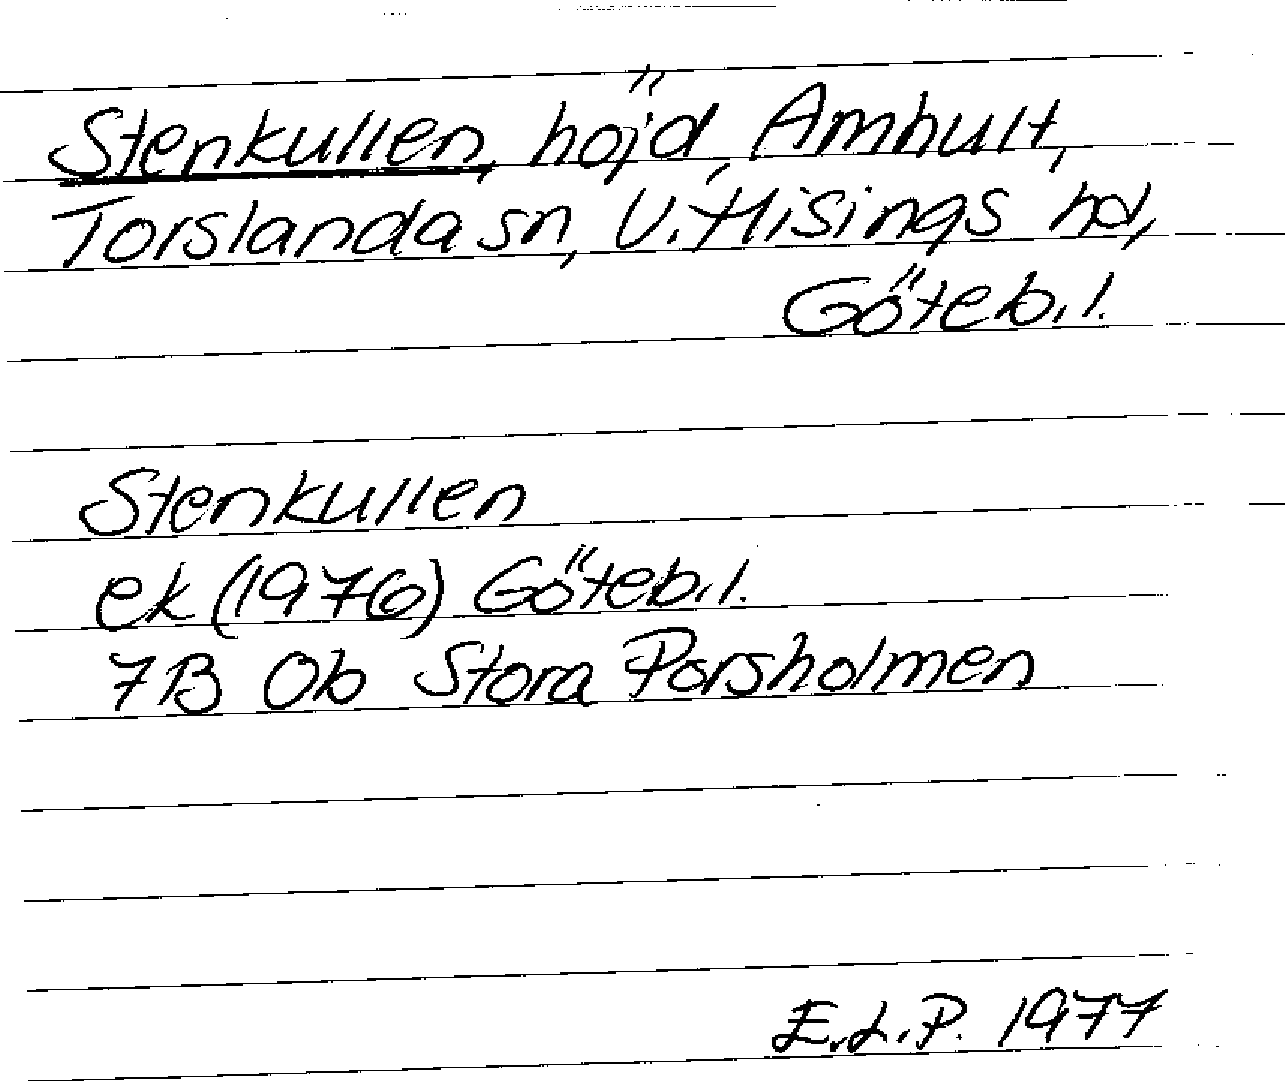 Stenkullen, höjd, Amhult,
Torslanda sn, V. Hisings hd,
Göteb. l.
Stenkullen
ek (1976) Göteb. l.
7B 0b Stora Porsholmen
E.L.P. 1977